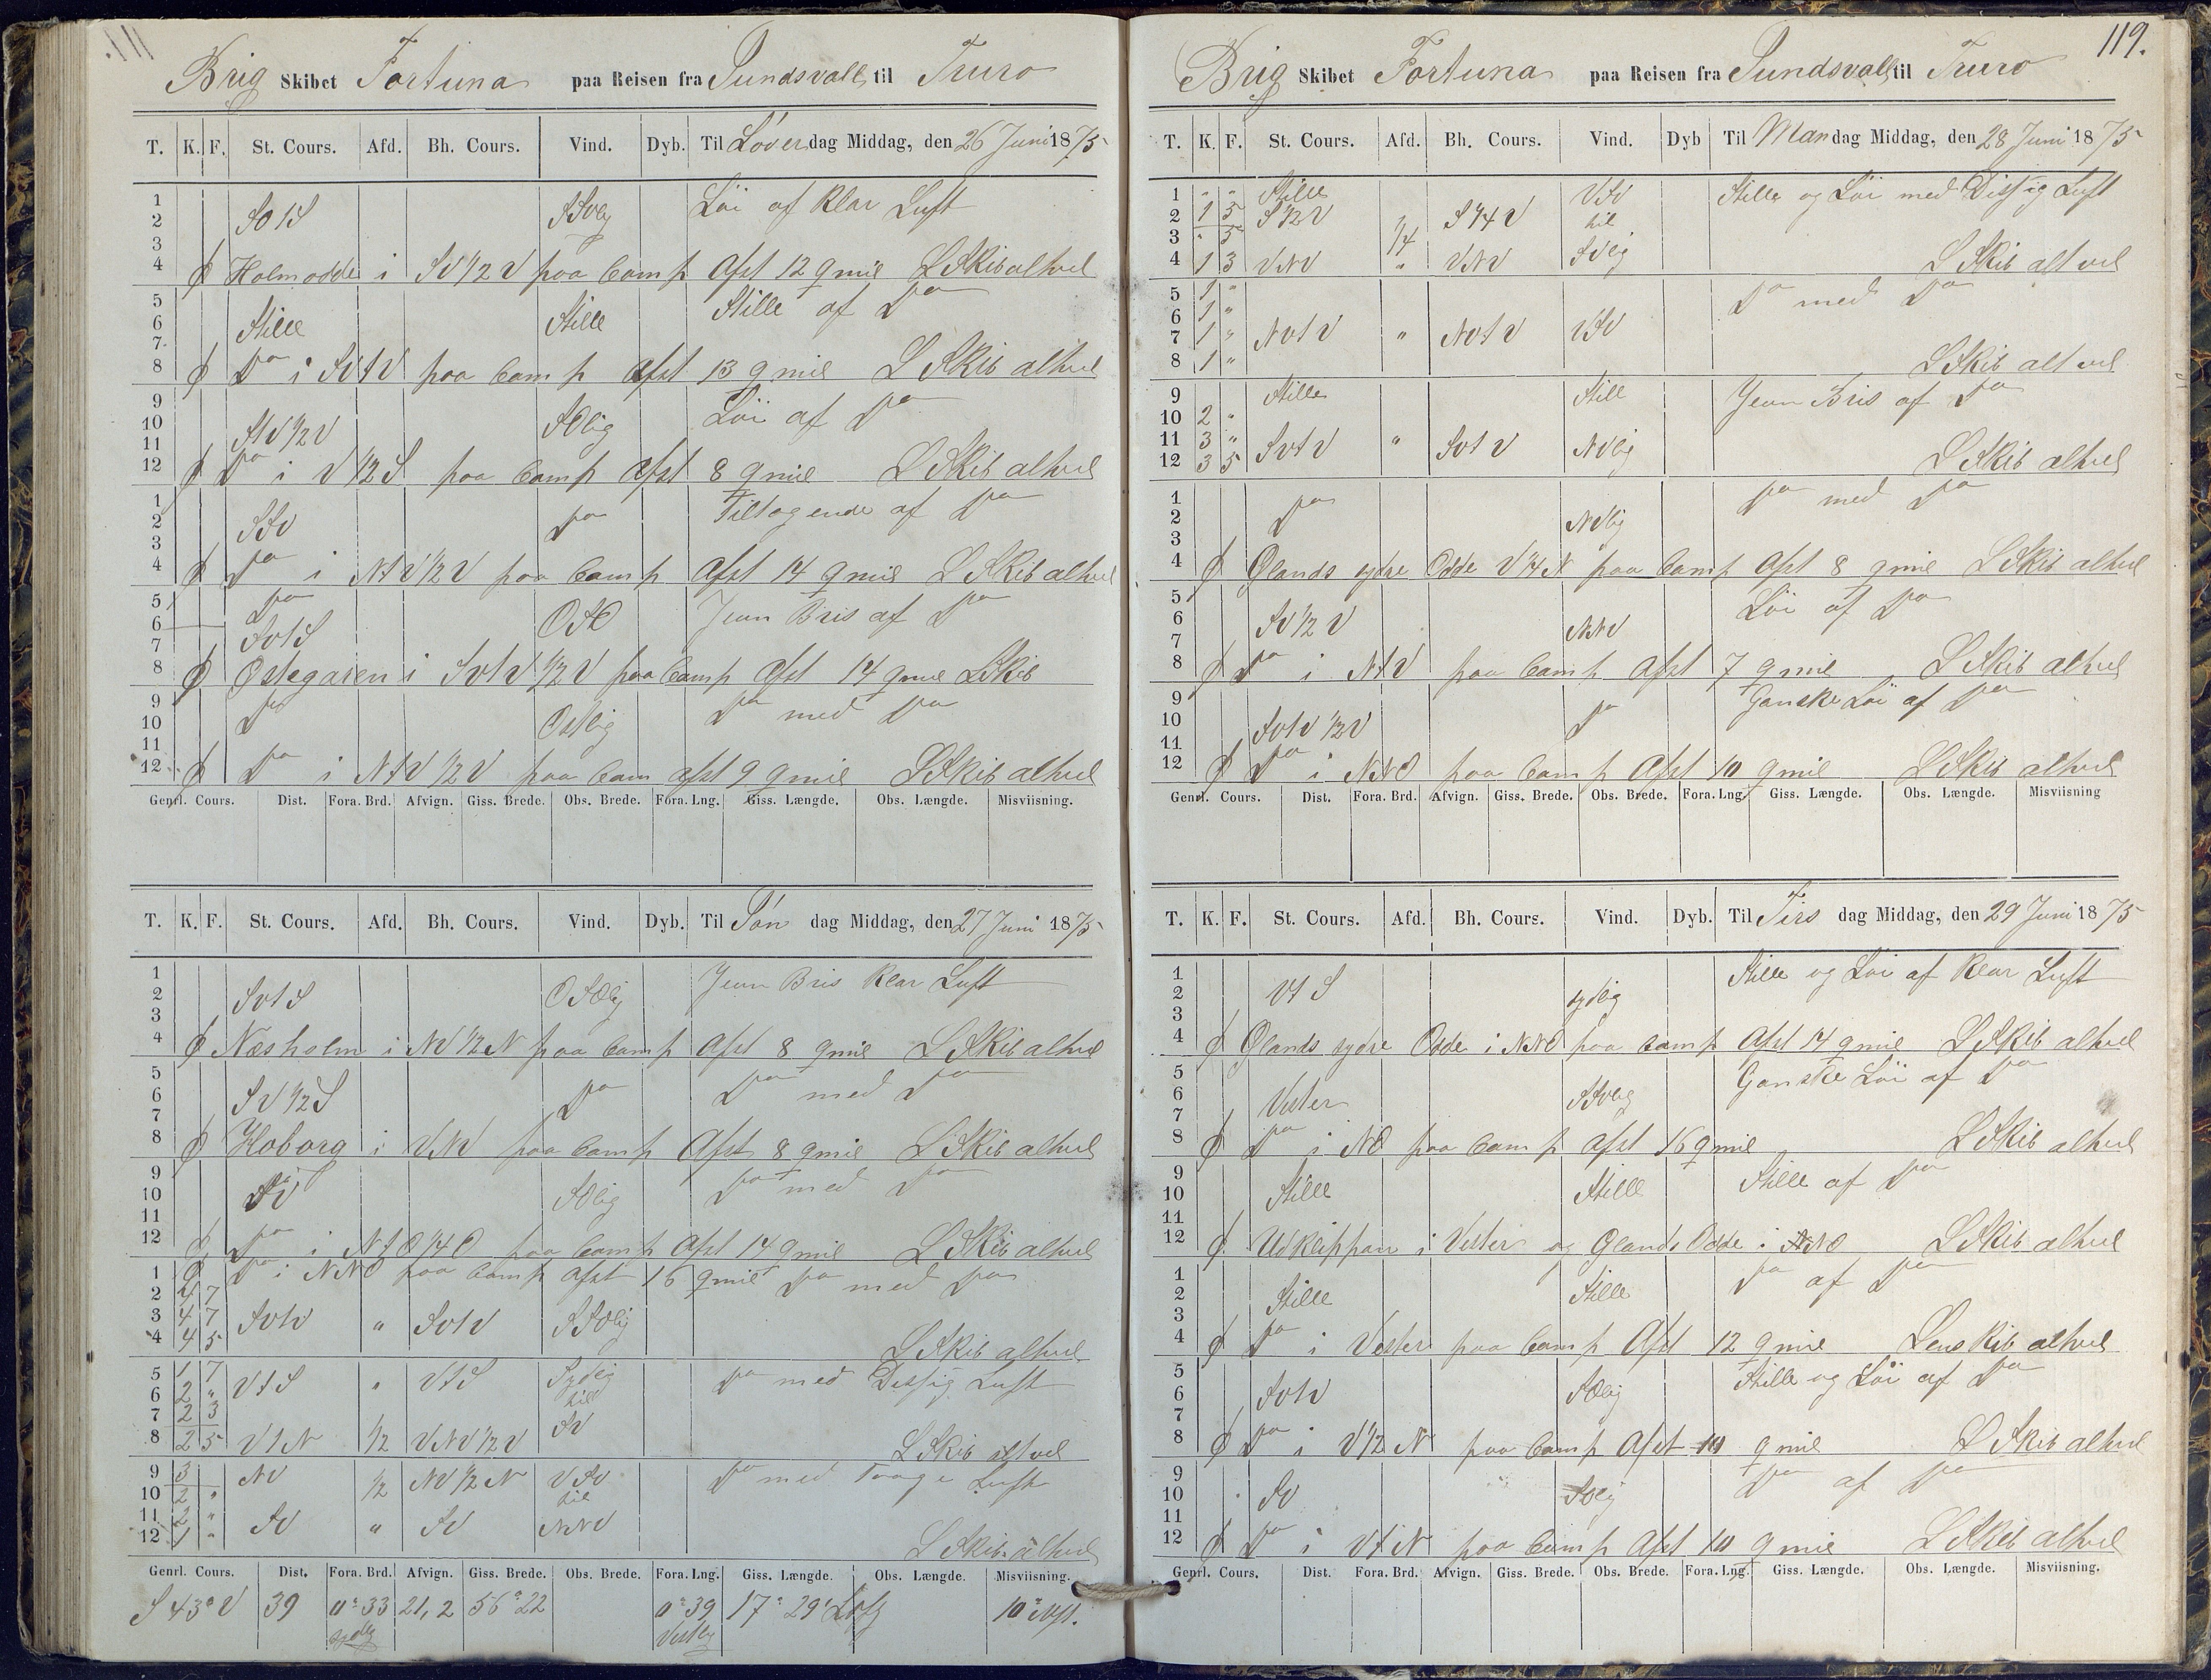 Brig Skibet Fortuna paa Reisen fra Sundsvall til Truro
T. K. F. St. Cours. Afd. Bh. Cours. Vind. Dyb. Til Löverdag Middag, den 26 Juni 1875
1
2 SO t S SSvlig Löi af Klar Luft
3
4 ϕ Holmodde i SV 1/2 V paa Comp Afst 12 qmil L Skib alt vel
5
6 Stille Stille Stille af Do
7
8 ϕ Do i SV t V paa Comp Afst 13 qmil L Skib alt vel
9
10 StV 1/2 V SOlig Löi af Do
11
12 ϕ Do i V 1/2 S paa Comp Afst 8 qmil L Skib alt vel
1
2 SSV Do Tiltagende af Do
3
4 ϕ Do i NtV 1/2 V paa Comp Afst 14 qmil L Skib alt vel
5 Do
6 SV t S OSO Jevn Bris af Do
7
8 ϕ Östegaren i SV t V 1/2 V paa Comp Afst 14 qmil L Skib
9
10 Do Ostlig Do med Do
11
12 ϕ Do i NtV 1/2 V paa Com afst 9 qmil L Skib alt vel
Genrl. Cours. Dist. Fora. Brd. Afvign. Giss. Brede. Obs. Brede. Fora. Lng. Giss. Længde. Obs. Længde. Misviisning.
T. K. F. St. Cours. Afd. Bh. Cours. Vind. Dyb. Til Sön dag Middag, den 27 Juni 1875
1
2 SV t S OSOlig Jevn Bris Klar Luft
3
4 ϕ Næsholm i NV 1/2 N paa Comp Afst 8 qmil L Skib alt vel
5
6 SV 1/2 S Do Do med Do
7
8 ϕ Hoborg i VNV paa Comp Afst 8 qmil L Skib alt vel
9
10 SV SOlig Do med Do
11
12 ϕ Do i NtO 1/4 O paa Comp Afst 14 qmil L Skib alt vel
1 ϕ Do i NNO paa Comp afst 16 qmil Do med Do
2 4 7
3 4 7 SV t V " SV t V SSOlig
4 4 5 L Skib alt vel
5 1 7 V t S " V t S Sydlig Do med Dissig Luft
6 2 " til
7 2 3 SV
8 2 5 V t N 1/2 VNV 1/2 V L Skib alt vel
9 3 NV 1/2 NV 1/2 N VSV Do med Taage Luft
10 2 " til
11 2 " SV " SV NNV
12 1 " L Skib alt vel
Genrl. Cours. Dist. Fora. Brd. Afvign. Giss. Brede. Obs. Brede. Fora. Lng. Giss. Længde. Obs. Længde. Misviisning.
S 43° V 39 0° 33 21,2 56° 22 0° 39 17° 29' 10° Vst.
sydlig Vestlig
119.
Brig Skibet Fortuna paa Reisen fra Sundsvall til Truro
T. K. F. St. Cours. Afd. Bh. Cours. Vind. Dyb Til Mandag Middag, den 28 Juni 1875
1 " " Stille VSV Stille og Löi med Dissig Luft
2 1 5 S 1/2 V S 1/4 V til
3 " 5 1/4
4 1 3 VNV " VNV SVlig L Skib alt vel
5 1 " Do med Do
6 1 "
7 1 " NV t V " NV t V VSV
8 1 " L Skib alt vel
9 Stille Still Jevn Bris af Do
10 2 "
11 3 " SV t V " SV t V NVlig
12 3 5 L Skib alt vel
1 Do Do med Do
2 NVlig
3
4 ϕ Ølands sydre Odde V 1/4 N paa Comp Afst 8 qmil L Skib alt vel
5
6 SV 1/2 V NNV Löi af Do
7
8 ϕ Do i NtV paa Comp Afst 7 qmil L Skib alt vel
9
10 SV t V 1/2 V Do Ganske Löi af Do
11
12 ϕ Do i NNO paa Comp Afst 10 qmil L Skib alt vel
Genrl. Cours. Dist. Fora. Brd. Afvign. Giss. Brede. Obs. Brede. Fora. Lng. Giss. Længde. Obs. Længde. Misviisning
T. K. F. St. Cours. Afd. Bh. Cours. Vind. Dyb. Til Tirs dag Middag, den 29 Juni 1875
1
2 V t S sydlig Stille og Löi af Klar Luft
3
4 ϕ Ølands sydre Odde i NNO paa Comp Afst 14 qmil L Skib alt vel
5
6 Vester SSvlig Ganske Löi af Do
7
8 ϕ Do i NO paa Comp afst 16 qmil L Skib alt vel
9
10 Stille Stille Stille af Do
11
12 ϕ Udklippan i Vester og Ølands Odde i NO L Skib alt vel
1
2 Stille Stille Do af Do
3
4 ϕ Do i Vester paa Comp Afst 12 qmil Lens Skib alt vel
5
6 SV t V SOlig Stille og Löi af Do
7
8 ϕ Do i V 1/2 N paa Comp Afst 10 qmil L Skib alt vel
9
10 SV SOlig Do af Do
11
12 ϕ Do i V t N paa Comp Afst 10 qmil L Skib alt vel
Genrl. Cours. Dist. Fora. Brd. Afvign. Giss. Brede. Obs. Brede. Fora. Lng. Giss. Længde. Obs. Længde. Misviisning.